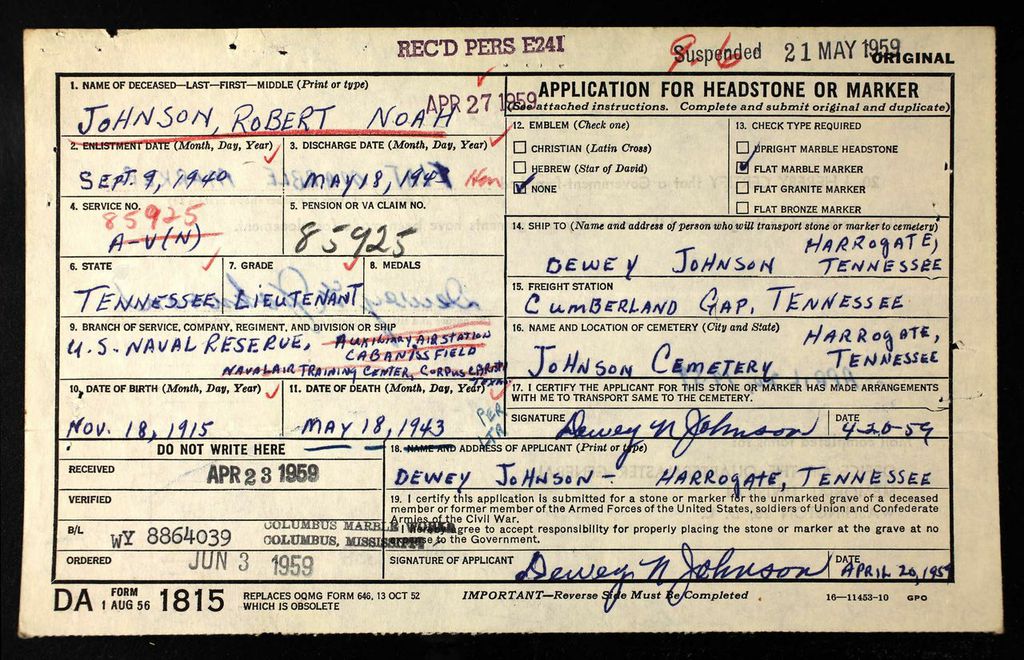 REC'D PERS E241
9-6
Suspended 21 MAY 1959
ORIGINAL
1. NAME OF DECEASED—LAST—FIRST—MIDDLE (Print or type)
JOHNSON, ROBERT NOAH
APR 27 1959
2. ENLISTMENT DATE (Month, Day, Year)
SEPT. 9, 1940
3. DISCHARGE DATE (Month, Day, Year)
MAY 18, 1943 Hon
4. SERVICE NO.
85925
A-V(N)
5. PENSION OR VA CLAIM NO.
85925
6. STATE
TENNESSEE
7. GRADE
LIEUTENANT
8. MEDALS
9. BRANCH OF SERVICE, COMPANY, REGIMENT, AND DIVISION OR SHIP
U.S. NAVAL RESERVE, AUXILIARY AIR STATION
CABANISS FIELD
NAVAL AIR TRAINING CENTER, CORPUS CHRISTI
TEXAS
10. DATE OF BIRTH (Month, Day, Year)
NOV. 18, 1915
11. DATE OF DEATH (Month, Day, Year)
MAY 18, 1943
PER
LTR
DO NOT WRITE HERE
RECEIVED
APR 23 1959
VERIFIED
B/L
WY 8864039
COLUMBUS MARBLE WORKS
COLUMBUS, MISSISSIPPI
ORDERED
JUN 3 1959
APPLICATION FOR HEADSTONE OR MARKER
(See attached instructions. Complete and submit original and duplicate)
12. EMBLEM (Check one)
CHRISTIAN (Latin Cross)
HEBREW (Star of David)
NONE
13. CHECK TYPE REQUIRED
UPRIGHT MARBLE HEADSTONE
FLAT MARBLE MARKER
FLAT GRANITE MARKER
FLAT BRONZE MARKER
14. SHIP TO (Name and address of person who will transport stone or marker to cemetery)
DEWEY JOHNSON HARROGATE,
TENNESSEE
15. FREIGHT STATION
CUMBERLAND GAP, TENNESSEE
16. NAME AND LOCATION OF CEMETERY (City and State)
JOHNSON CEMETERY HARROGATE,
TENNESSEE
17. I CERTIFY THE APPLICANT FOR THIS STONE OR MARKER HAS MADE ARRANGEMENTS
WITH ME TO TRANSPORT SAME TO THE CEMETERY.
SIGNATURE
Dewey N Johnson
DATE
4-20-59
18. NAME AND ADDRESS OF APPLICANT (Print or type)
DEWEY JOHNSON - HARROGATE, TENNESSEE
19. I certify this application is submitted for a stone or marker for the unmarked grave of a deceased
member or former member of the Armed Forces of the United States, soldiers of Union and Confederate
Armies of the Civil War.
I hereby agree to accept responsibility for properly placing the stone or marker at the grave at no
expense to the Government.
SIGNATURE OF APPLICANT
Dewey N Johnson
DATE
APRIL 20, 1959
DA FORM 1 AUG 56 1815
REPLACES OQMG FORM 646, 13 OCT 52
WHICH IS OBSOLETE
IMPORTANT—Reverse Side Must Be Completed
16—11453-10 GPO